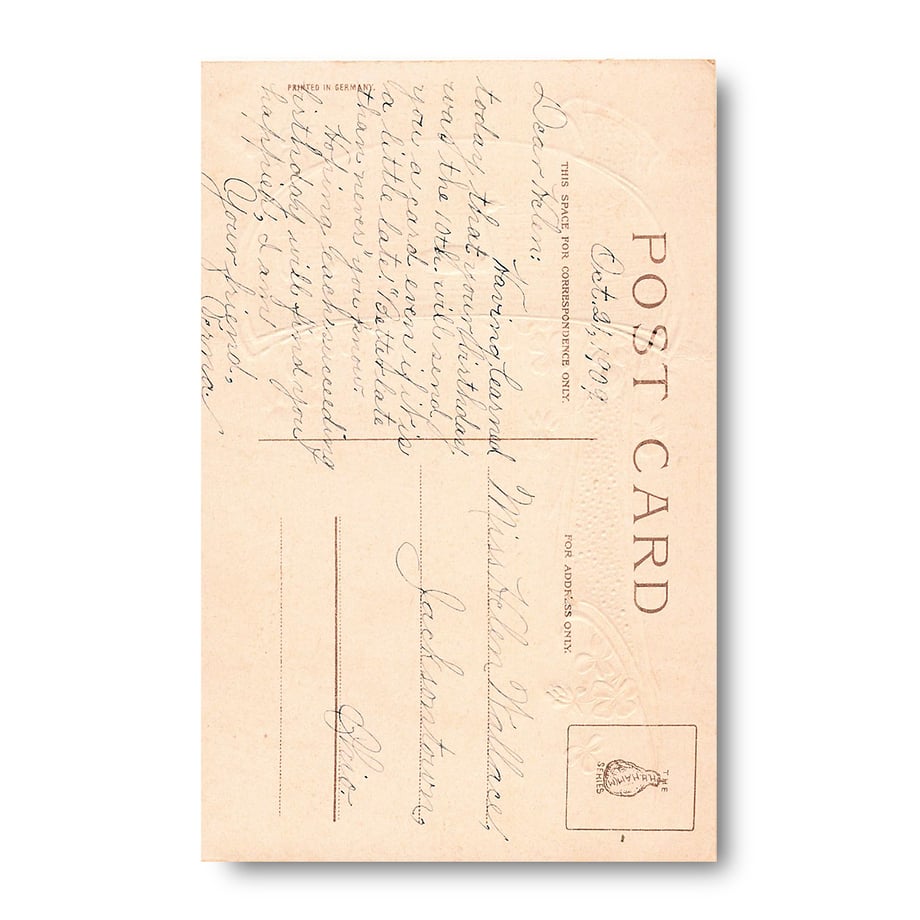 POST CARD
THIS SPACE FOR CORRESPONDENCE ONLY.
FOR ADDRESS ONLY.
THE
H.B.HAMM
SERIES
Oct. 21, 1909
Dear Helen:
Having learned
today, that your birthday
was the 10th. will send
you a card even if it is
a little late. "Better late
than never" you know.
Hoping each succeeding
birthday will find you
happier, I am
Your friend,
Miss Helen Wallace,
Jacksontown,
Ohio.
PRINTED IN GERMANY.